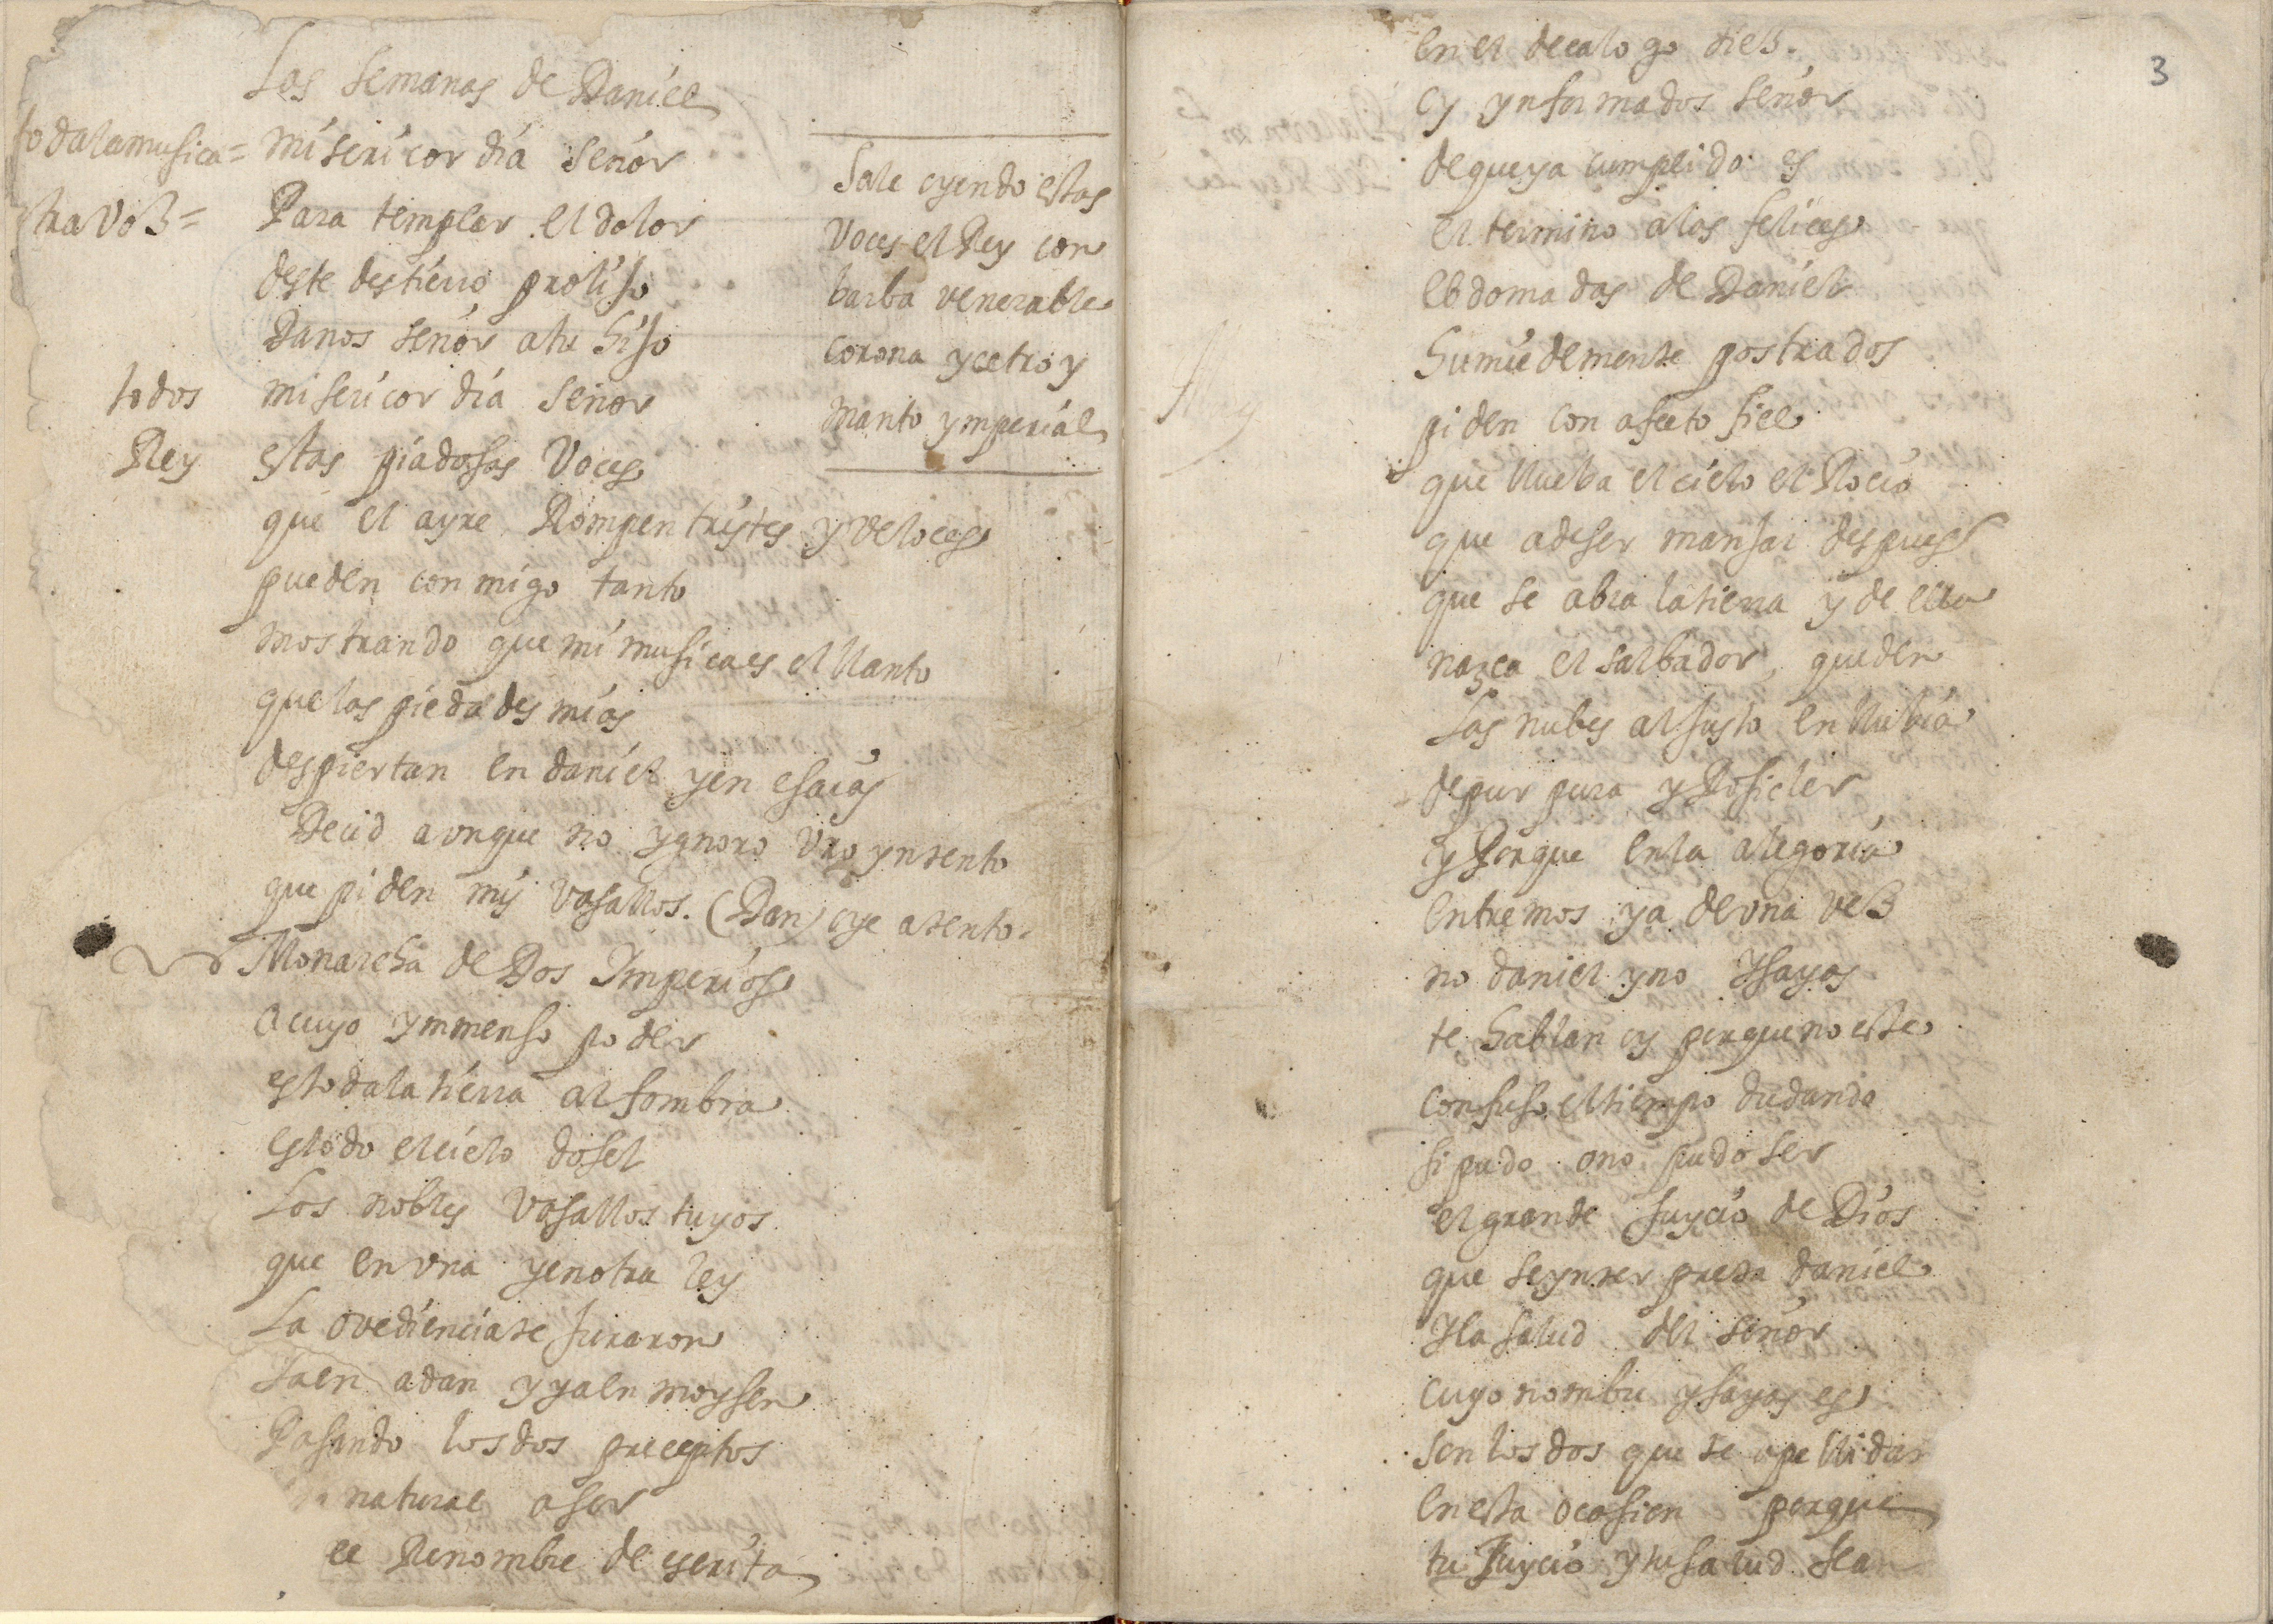 Las semanas de Daniel
toda la musica = misericordia señor
otra voz = Para templar el dolor
deste destierro prolijo
Danos señor a tu hijo
todos misericordia señor
Rey estas piadossas Voces
que el ayre Rompen tristes y veloces
pueden conmigo tanto
mostrando que mi musica es el llanto
que las piedades mias
despiertan en daniel y en esaias
Decid aonque no ygnoro vro yntento
que piden mis vasallos. (Dan) oye atento.
Monarcha de Dos Imperios
a cuyo ymmenso poder
es toda la tierra alfombra
es todo el cielo dosel
Los nobles vasallos tuyos
que en vna y en otra ley
La ovediencia te juraron
Ia en adan y ya en moyssen
Pasando los dos preceptos
natural a ser
el Renombre de escrita
Sale oyendo estas
Voces el Rey con
barba venerable
corona y cetro y
manto ymperial
3
en el decalogo diez.
oy ynformados señor
de que ya cumplido es
el termino a las felices
ebdomadas de Daniel
humildemente postrados
piden con afecto fiel
que llueba el cielo el Rocio
que a de ser mansar despues
que se abra la tierra y de ella
nazca el salbador, que den
Las nubes al justo en llubia
de purpura y Rosicler
y Porque en la alegoria
entremos ya de vna vez
no daniel y no Isayas
te hablan oy porque no este
confuso el tiempo dudando
si pudo o no pudo ser
el grande juycio de Dios
que se ynterpreta daniel
I la salud del señor
cuyo nombre ysayas es
son los dos que se apellidan
en esta ocassion porque
tu Juycio y tu salud sean